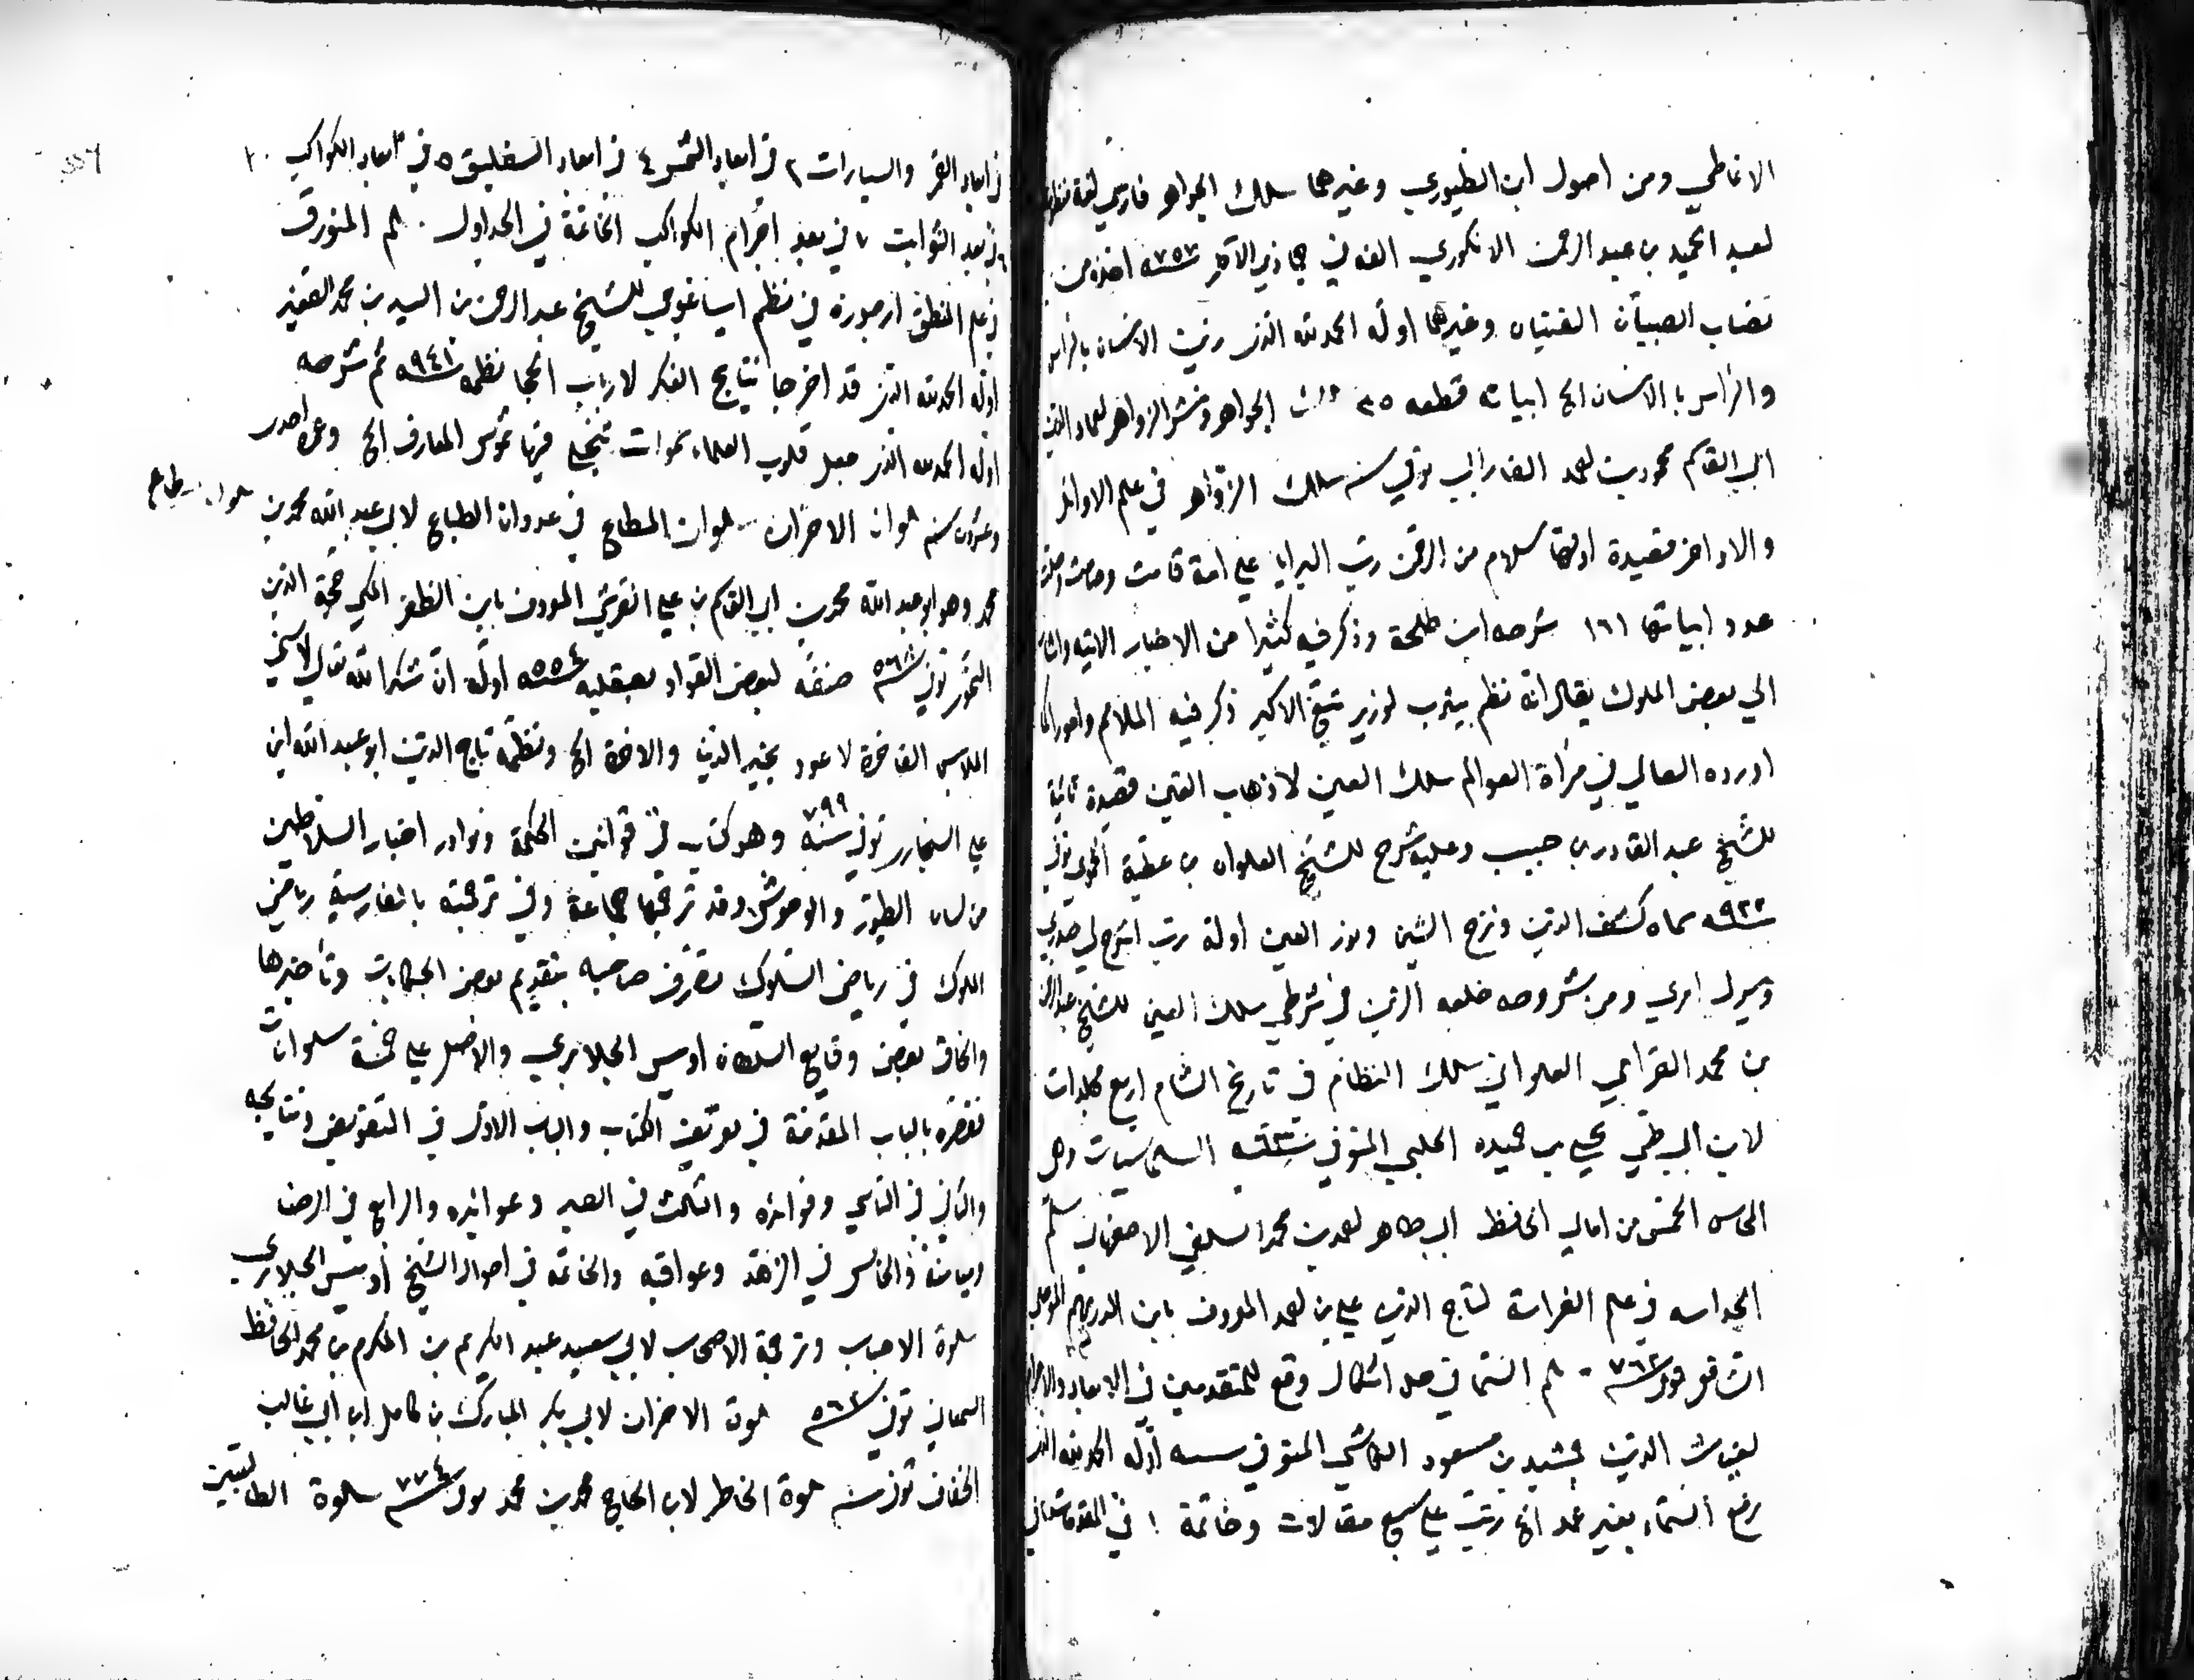 الانماطي ومن اصول ابن الطيوري وغيرهما سلك الجواهر فارسي لغة نظمها
لعبد الحميد بن عبد الرحمن الانكوري الفه في جماذي الآخر سنة ٧٥٧ اخذه من
نصاب الصبيان الفتيان وغيرهما اوله الحمد لله الذي زين الانسان بالراس
والراس بالانسان الخ ابياته قطعه ٢٥ الجواهر ونشر الزواهر لعماد الدين
ابي القاسم محمود بن احمد الفارابي توفي سنه سلك الزواهر في علم الاوائل
والاواخر قصيدة اولها سلام من الرحمن رب البرايا علي امة قامت وصامت وصلت
عدد ابياتها ١٦١ شرحه ابن طلحة وذكر فيه كثيرا من الاخبار الاتيه واشار
الي بعض الملوك يقال انه نظم بيثرب لوزير تبّع الاكبر ذكر فيه الملاحم وامورا كما
اورده العالي في مرأة العوالم سلك العين لاذهاب الغين قصيدة تائية
للشيخ عبد القادر بن حبيب وعليه شرح للشيخ العلوان بن عطية الحموي توفي
سنة ٩٢٢ سماه كشف الرين ونزح الشين ونور العين اوله رب اشرح لي صدري
ويسر لي امري ومن شروحه خلعه الزين في شرطي سلك العين للشيخ عبد الرحمن
بن محمد القرامي العلواني سلك النظام في تاريخ الشام اربع مجلدات
لابن ابي طي يحيي بن حميده الحلبي المتوفي سنة ٦٣٠ السلماسيات وهي
المجالس الخمس من امالي الحافظ ابي طاهر احمد بن محمد السلفي الاصفهاني سلّم
الحراسه في علم الفراسة لتاج الدين علي بن احمد المعروف بابن الدريهم الموصلي
الشافعي توفي سنة ٧٦٢ سلم السماء في حل اشكال وقع للمتقدمين في الابعاد والاجرام
لغياث الدين جمشيد بن مسعود الكاشي المتوفي سنه اوله الحمد لله الذي
رفع السماء بغير عمد الخ رتب علي سبع مقالات وخاتمة ١ في المقدمات ٢ في
في ابعاد القمر والسيارات ٣ في ابعاد الشمس ٤ في ابعاد السفليين ٥ في ابعاد الكواكب
٦ في بعد الثوابت ٧ في بعد اجرام الكواكب الخاتمة في الجداول سلم المنورق
في علم المنطق ارجوزه في نظم ايساغوجي للشيخ عبد الرحمن بن السيد بن محمد الصغير
اوله الحمد لله الذي قد اخرجا نتايج الفكر لارباب الحجا نظمه سنة ٩٤١ ثم شرحه
اوله الحمد لله الذي جعل قلوب العلماء سموات تتجلي فيها شموس المعارف الخ وعمره احدي
وعشرون سنه سلوان الاحزان سلوان المطاع في عدوان الطباع لابي عبد الله محمد بن
سلوان المطاع
محمد وهو ابو عبد الله محمد بن ابي القاسم بن علي القرشي المعروف بابن الظفر المكي حجة الدين
النحوي توفي سنة ٥٦٨ صنفه لبعض القواد بصقليه سنة ٥٥٤ اوله ان شكر الله تعالي لاسني
الملابس الفاخرة لاعود بخير الدنيا والاخرة الخ ونظمه تاج الدين ابو عبد الله ابن
علي السنجاري توفي سنة ٧٩٩ وهو كتاب في قوانين الحكمة ونوادر اخبار السلاطين
من لسان الطيور والوحوش وقد ترجمها جماعة وفي ترجمته بالفارسية رياض
الملوك في رياض السلوك تصرف صاحبه بتقديم بعض الحكايات وتأخيرها
والحاق بعض وقايع السلطان اويس الجلايري والاصل علي خمسة سلوانات
نغضره بالباب المقدمة في تعريف الكتاب والباب الاول في التفويض ونتايجه
والثاني في التاسي وفوائده والثالث في الصبر وعوائده والرابع في الرضا
وميامنه والخامس في الزهد وعواقبه والخاتمه في احوال الشيخ أويس الجلايري
سلوة الاحباب وترجمة الاصحاب لابي سعيد عبد الكريم بن المكرم بن محمد الحافظ
السمعاني توفي سنة ٥٦٢ سلوة الاحزان لابي بكر المبارك بن كامل ابن ابي غالب
الخفاف توفي سنه سلوة الخاطر لابن الحاج محمد بن محمد توفي سنة ٧٧٤ سلوة الطالبين